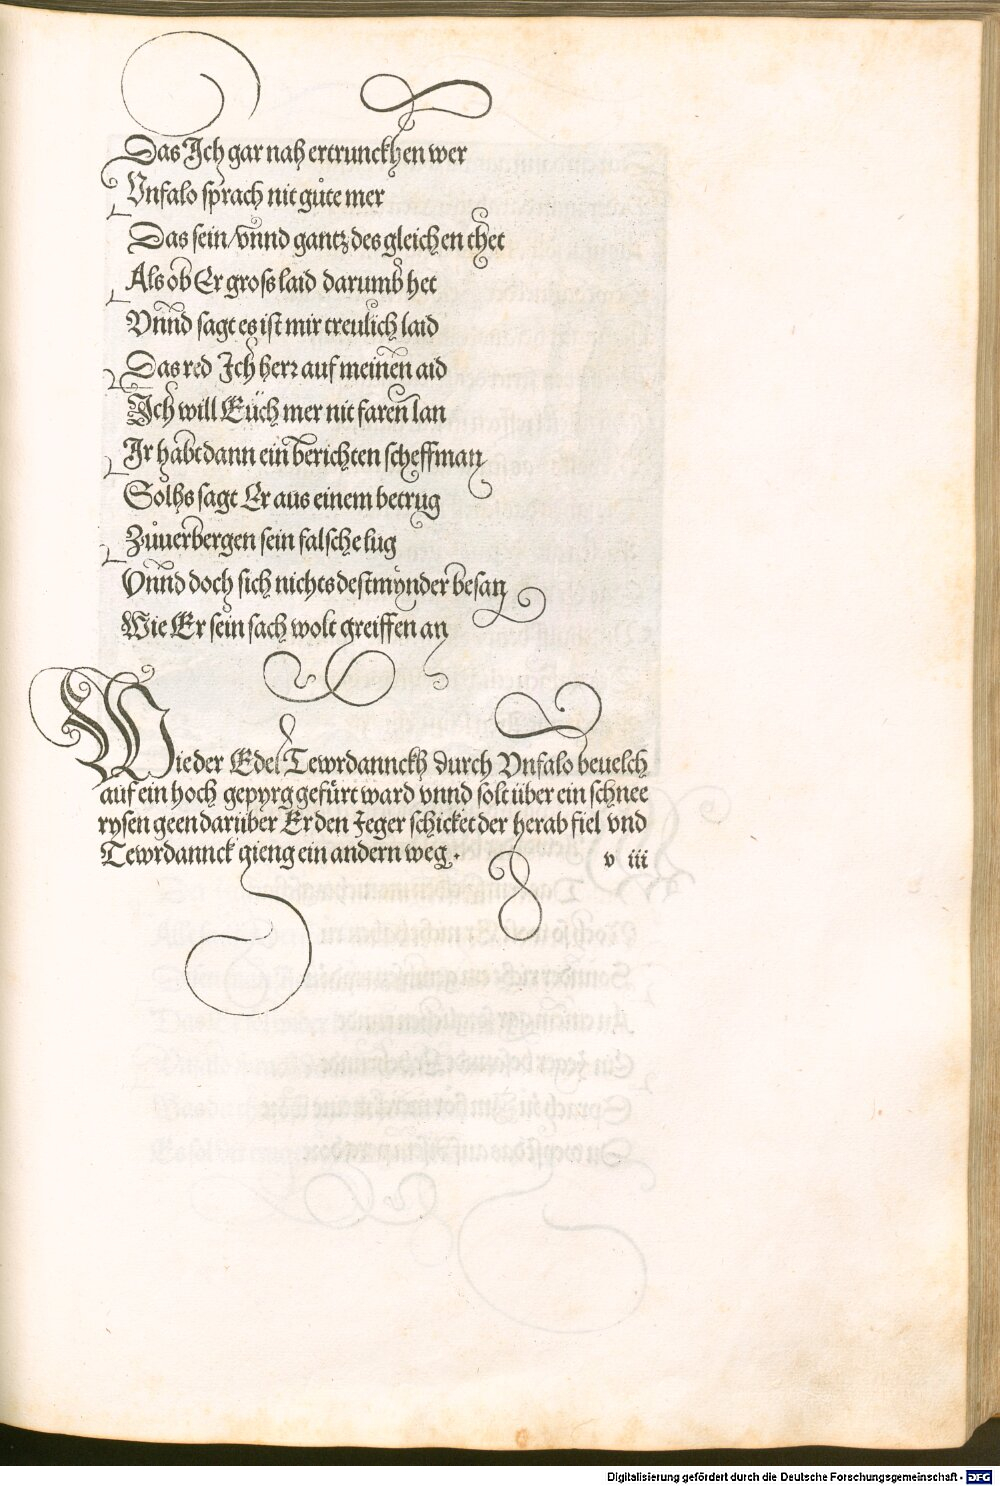 Das Ich gar nah ertrunckhen wer
Vnfalo sprach nit gůte mer
Das sein/vnnd gantz des gleichen thet
Als ob Er gross laid darumb het
Vnnd sagt es ist mir treulich laid
Das red Ich herr auf meinen aid
Ich will Euch mer nit faren lan
Ir habt dann ein berichten scheffman
Solhs sagt Er aus einem betrug
Zůuerbergen sein falsche lug
Vnnd doch sich nichts destmynder besan
Wie Er sein sach wolt greiffen an
Wie der Edel Tewrdannckh durch Vnfalo beuelch
auf ein hoch gepyrg gefürt ward vnnd solt über ein schnee
rysen geen darüber Er den Jeger schicket der herab fiel vnd
Tewrdannck gieng ein andern weg.
v iii
Digitalisierung gefördert durch die Deutsche Forschungsgemeinschaft - DFG